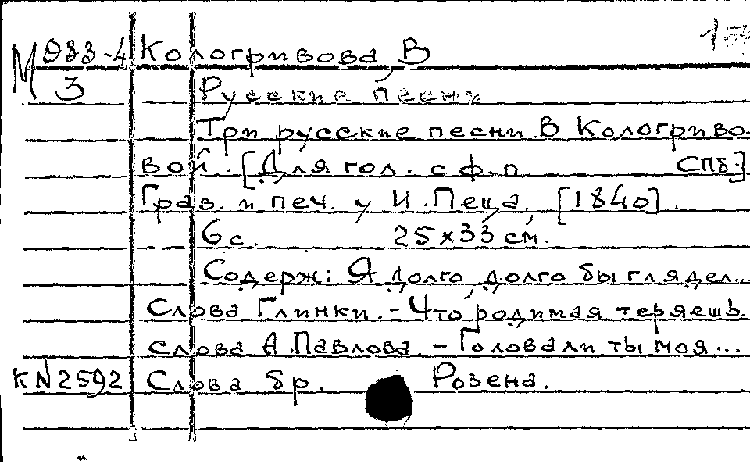 М 983-4 Кологривова, В
3 Русские песни
Три русские песни В Кологриво-
вой. [Для гол. с ф.п СПб.]
Грав. и печ. у И. Пеца, [1840].
6 с. 25х33 см.
Содерж: Я долго, долго бы глядел...
Слова Глинки. - Что, родимая теряешь.
слова А Павлова - Голова ли ты моя...
KN2592 Слова бр. Розена.